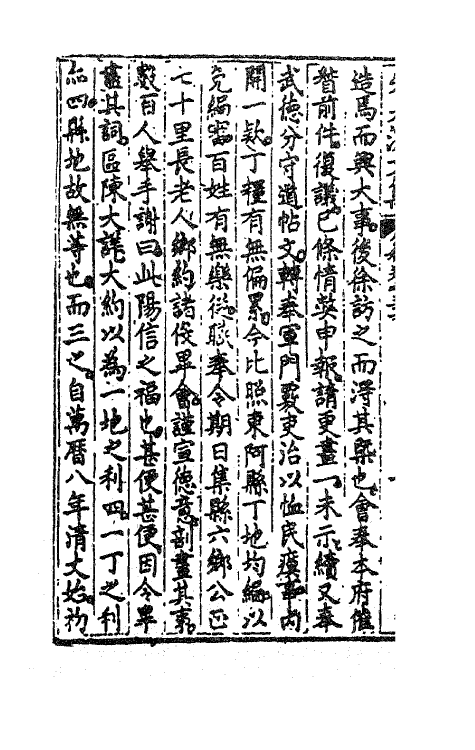 造焉而興大事後徐訪之而得其槩也會奉本府催
督前件復議已條情熒申報請更畫一未示續又奉
武德分守道帖文轉奉軍門覈吏治以恤民瘼事内
開一款丁糧有無偏累今比照東阿縣丁地均編以
完編審百姓有無樂從職奉令期日集縣六鄉公正
七十里長老人鄉約諸俊畢會謹宣德意剖畫其事
數百人舉手謝曰此陽信之福也甚便甚便因令畢
盡其詞區陳大謊大約以為一地之利四一丁之利
四縣地故無等也而三之自萬曆八年清丈始初